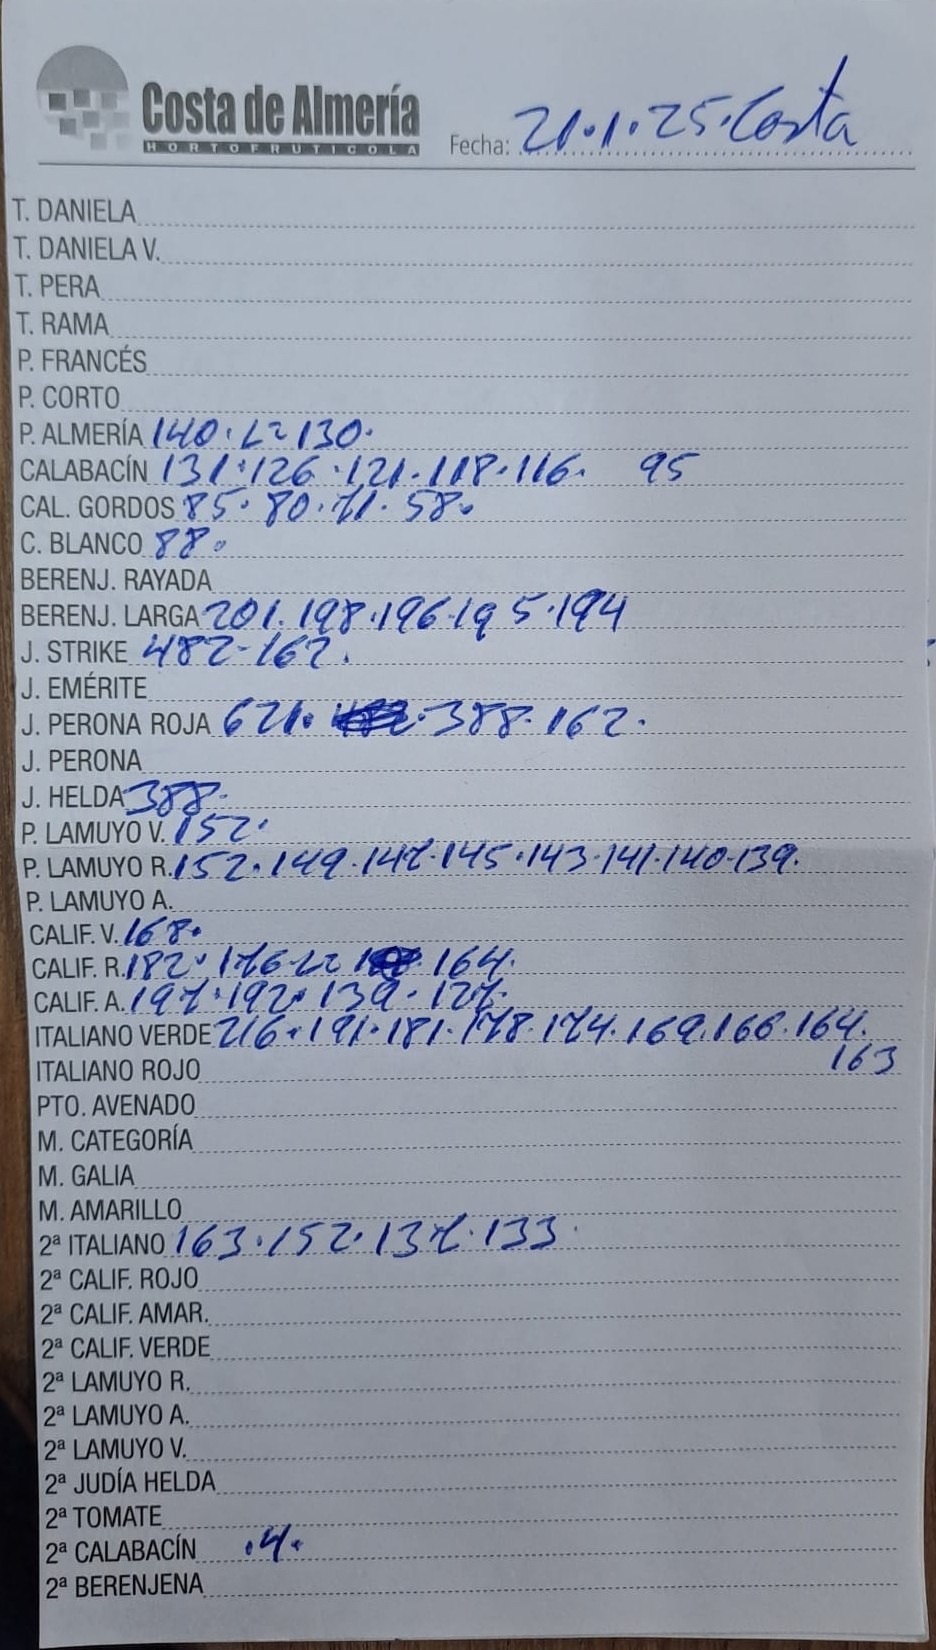 Costa de Almería
HORTOFRUTICOLA
Fecha: 21.1.25. Costa
T. DANIELA
T. DANIELA V.
T. PERA
T. RAMA
P. FRANCÉS
P. CORTO
P. ALMERÍA 140. L2 130.
CALABACÍN 131. 126. 121. 118. 116. 95
CAL. GORDOS 85. 80. 71. 58.
C. BLANCO 88.
BERENJ. RAYADA
BERENJ. LARGA 201. 198. 196. 195. 194
J. STRIKE 482. 162.
J. EMÉRITE
J. PERONA ROJA 621. 388. 162.
J. PERONA
J. HELDA 388.
P. LAMUYO V. 152.
P. LAMUYO R. 152. 149. 147. 145. 143. 141. 140. 139.
P. LAMUYO A.
CALIF. V. 168.
CALIF. R. 182. 176. L2 164.
CALIF. A. 197. 192. 139. 127.
ITALIANO VERDE 216. 191. 181. 178. 174. 169. 166. 164.
163
ITALIANO ROJO
PTO. AVENADO
M. CATEGORÍA
M. GALIA
M. AMARILLO
2ª ITALIANO 163. 152. 137. 133
2ª CALIF. ROJO
2ª CALIF. AMAR.
2ª CALIF. VERDE
2ª LAMUYO R.
2ª LAMUYO A.
2ª LAMUYO V.
2ª JUDÍA HELDA
2ª TOMATE
2ª CALABACÍN .4.
2ª BERENJENA